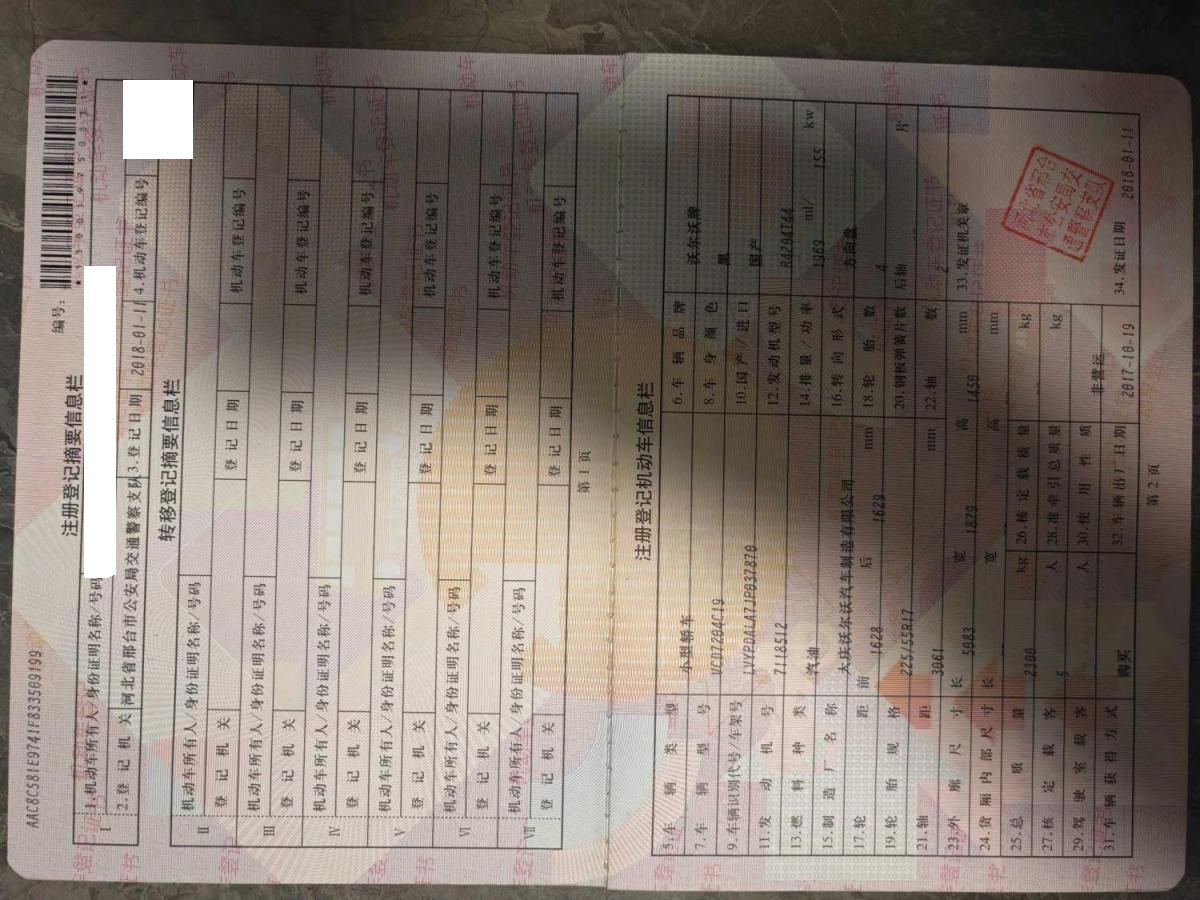 AAC8C581E9741F833509199
编号:
注册登记摘要信息栏
Ⅰ 1.机动车所有人/身份证明名称/号码
2.登记机关 河北省邢台市公安局交通警察支队 3.登记日期 2018-01-11 4.机动车登记编号
转移登记摘要信息栏
Ⅱ 机动车所有人/身份证明名称/号码
登记机关 登记日期 机动车登记编号
Ⅲ 机动车所有人/身份证明名称/号码
登记机关 登记日期 机动车登记编号
Ⅳ 机动车所有人/身份证明名称/号码
登记机关 登记日期 机动车登记编号
Ⅴ 机动车所有人/身份证明名称/号码
登记机关 登记日期 机动车登记编号
Ⅵ 机动车所有人/身份证明名称/号码
登记机关 登记日期 机动车登记编号
Ⅶ 机动车所有人/身份证明名称/号码
登记机关 登记日期 机动车登记编号
第 1 页
注册登记机动车信息栏
5.车辆类型 小型轿车 6.车辆品牌 沃尔沃牌
7.车辆型号 VCD7204C19 8.车身颜色 黑
9.车辆识别代号/车架号 LVYPDALA7JP037870 10.国产/进口 国产
11.发动机号 7118512 12.发动机型号 B4204T44
13.燃料种类 汽油 14.排量/功率 1969 ml/ 155 kw
15.制造厂名称 大庆沃尔沃汽车制造有限公司 16.转向形式 方向盘
17.轮距 前 1628 后 1629 mm 18.轮胎数 4
19.轮胎规格 225/55R17 20.钢板弹簧片数 后轴 片
21.轴距 3061 mm 22.轴数 2
23.外廓尺寸 长 5083 宽 1879 高 1450 mm 33.发证机关章
24.货厢内部尺寸 长 宽 高 mm
25.总质量 2300 kg 26.核定载质量 kg
27.核定载客 5 人 28.准牵引总质量 kg
29.驾驶室载客 人 30.使用性质 非营运
31.车辆获得方式 购买 32.车辆出厂日期 2017-10-19 34.发证日期 2018-01-11
河北省邢台
市公安局交
通警察支队
第 2 页